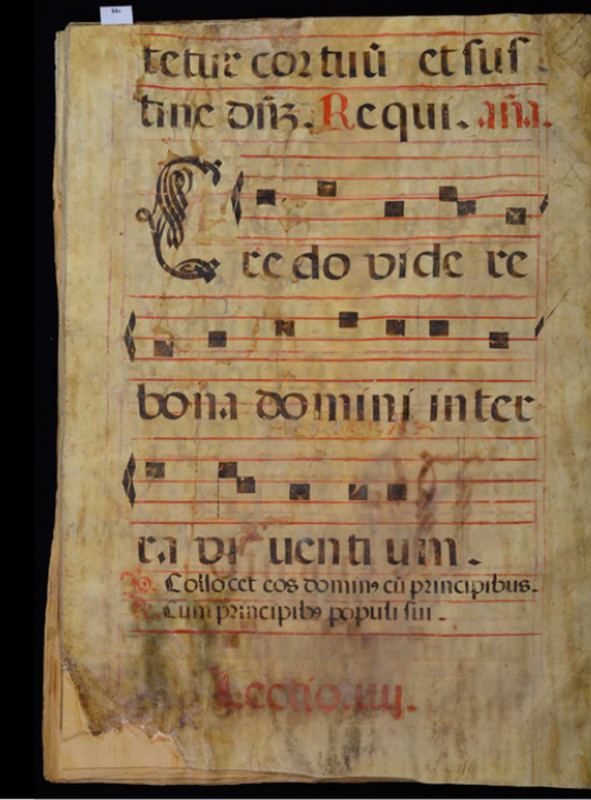 tetur cor tuū et sus
tine dn̄ꝫ. Requi. an̄a.
Credo videre
bona domini in ter
ra viventium.
Collocet eos dominꝰ cū principibus.
Cum principibꝰ populi sui.
Lectio. iiij.